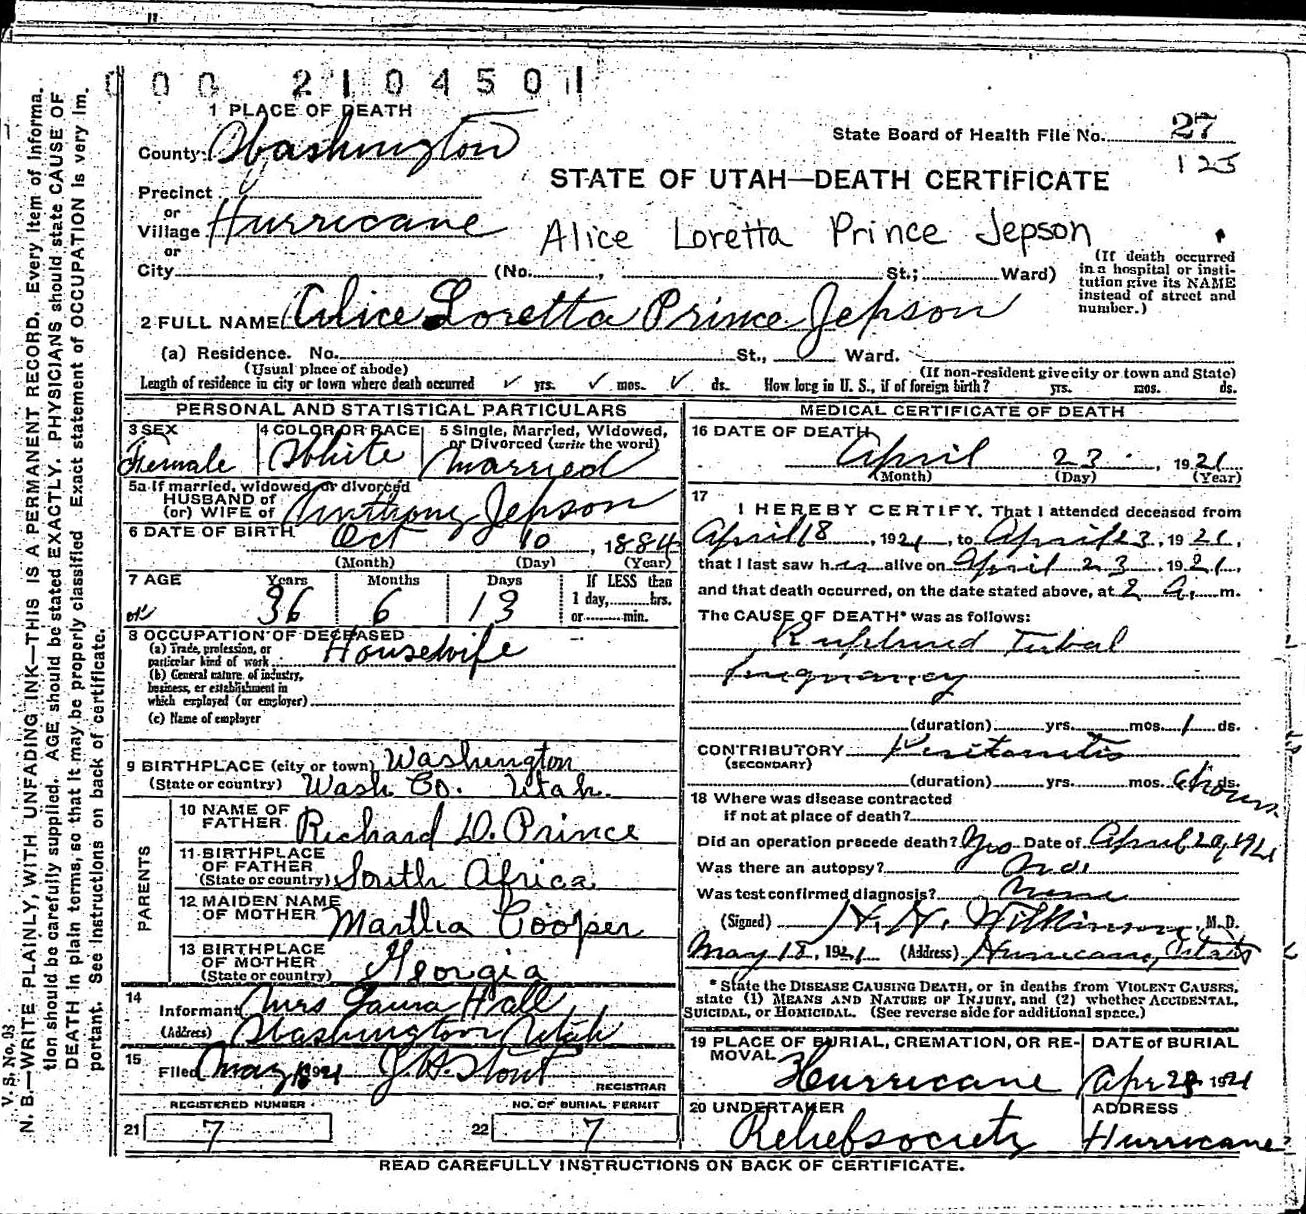 000 2104501
1 PLACE OF DEATH
County Washington
State Board of Health File No. 27
125
Precinct
STATE OF UTAH—DEATH CERTIFICATE
or
Village Hurricane
Alice Loretta Prince Jepson
or
City (No. , St.; Ward)
(If death occurred in a hospital or insti-
tution give its NAME
instead of street and
number.)
2 FULL NAME Alice Loretta Prince Jepson
(a) Residence. No. St., Ward.
(Usual place of abode) (If non-resident give city or town and State)
Length of residence in city or town where death occurred ✓ yrs. ✓ mos. ✓ ds. How long in U. S., if of foreign birth? yrs. mos. ds.
PERSONAL AND STATISTICAL PARTICULARS
3 SEX 4 COLOR OR RACE 5 Single, Married, Widowed,
or Divorced (write the word)
Female White Married
5a If married, widowed or divorced
HUSBAND of
(or) WIFE of Anthony Jepson
6 DATE OF BIRTH Oct 10, 1884
(Month) (Day) (Year)
7 AGE Years Months Days If LESS than
1 day, hrs.
or min.
36 6 13
8 OCCUPATION OF DECEASED
(a) Trade, profession, or
particular kind of work Housewife
(b) General nature of industry,
business, or establishment in
which employed (or employer)
(c) Name of employer
9 BIRTHPLACE (city or town) Washington
(State or country) Wash Co. Utah.
PARENTS
10 NAME OF
FATHER Richard D. Prince
11 BIRTHPLACE
OF FATHER
(State or country) South Africa
12 MAIDEN NAME
OF MOTHER Martha Cooper
13 BIRTHPLACE
OF MOTHER
(State or country) Georgia
14
Informant Mrs Laura Hall
(Address) Washington Utah
15
Filed May 1921 J. H. Stout
REGISTRAR
REGISTERED NUMBER NO. OF BURIAL PERMIT
21 7 22 7
MEDICAL CERTIFICATE OF DEATH
16 DATE OF DEATH
April 23, 1921
(Month) (Day) (Year)
17
I HEREBY CERTIFY, That I attended deceased from
April 18, 1921, to April 23, 1921,
that I last saw her alive on April 23, 1921,
and that death occurred, on the date stated above, at 2 A. m.
The CAUSE OF DEATH* was as follows:
Ruptured Tubal
Pregnancy
(duration) yrs. mos. 1 ds.
CONTRIBUTORY Peritonitis
(SECONDARY)
(duration) yrs. mos. ds. hours.
18 Where was disease contracted
if not at place of death?
Did an operation precede death? Yes Date of April 20, 1921
Was there an autopsy? No.
Was test confirmed diagnosis? None
(Signed) H. H. Wilkinson, M. D.
May 18, 1921 (Address) Hurricane, Utah
* State the DISEASE CAUSING DEATH, or in deaths from VIOLENT CAUSES,
state (1) MEANS AND NATURE OF INJURY, and (2) whether ACCIDENTAL,
SUICIDAL, or HOMICIDAL. (See reverse side for additional space.)
19 PLACE OF BURIAL, CREMATION, OR RE-
MOVAL Hurricane
DATE of BURIAL
Apr 1921
20 UNDERTAKER
Relief society
ADDRESS
Hurricane
READ CAREFULLY INSTRUCTIONS ON BACK OF CERTIFICATE.
V. S. No. 98
N. B.—WRITE PLAINLY, WITH UNFADING INK—THIS IS A PERMANENT RECORD. Every item of informa-
tion should be carefully supplied. AGE should be stated EXACTLY. PHYSICIANS should state CAUSE OF
DEATH in plain terms, so that it may be properly classified Exact statement of OCCUPATION is very im-
portant. See instructions on back of certificate.